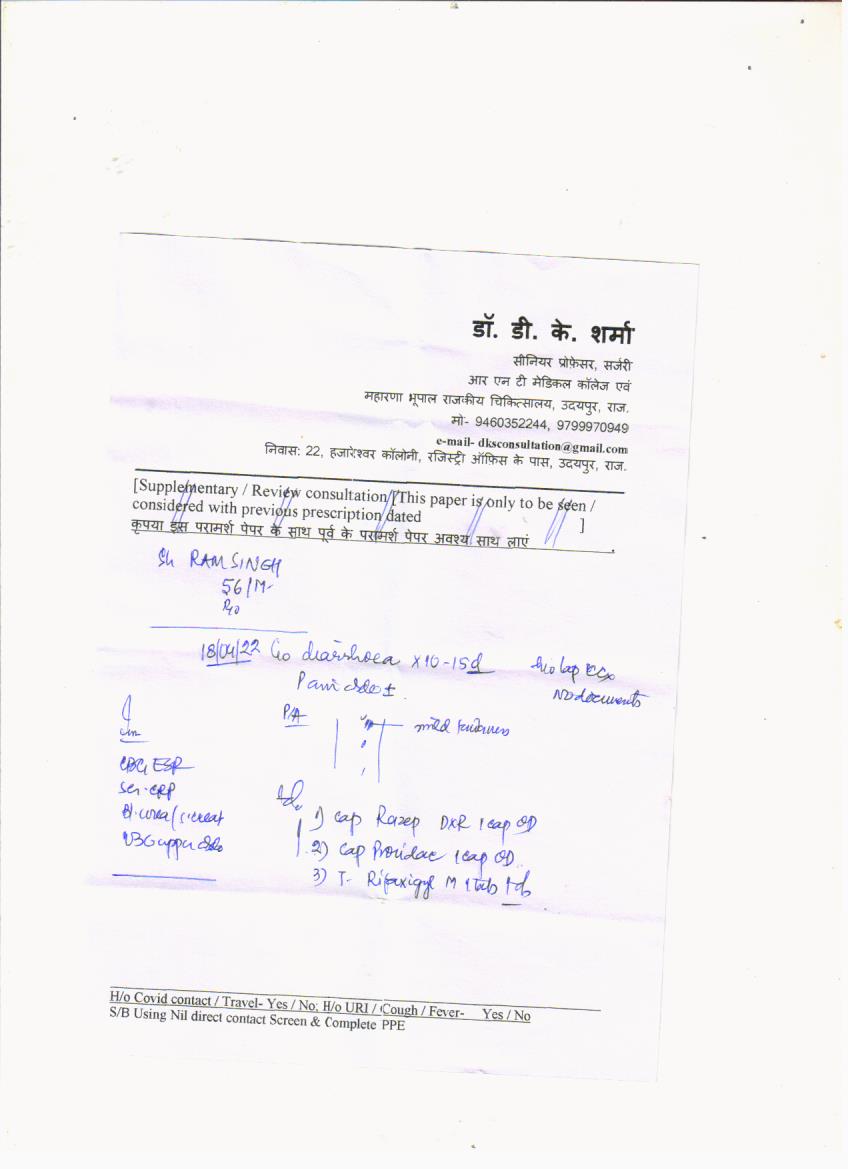 डॉ. डी. के. शर्मा
सीनियर प्रोफ़ेसर, सर्जरी
आर एन टी मेडिकल कॉलेज एवं
महारणा भूपाल राजकीय चिकित्सालय, उदयपुर, राज.
मो- 9460352244, 9799970949
e-mail- dksconsultation@gmail.com
निवास: 22, हजारेश्वर कॉलोनी, रजिस्ट्री ऑफ़िस के पास, उदयपुर, राज.
[Supplementary / Review consultation/[This paper is only to be seen /
considered with previous prescription dated ]
कृपया इस परामर्श पेपर के साथ पूर्व के परामर्श पेपर अवश्य साथ लाएं
Sh RAM SINGH
56/M
18/04/22 C/o diarrhoea x10-15d h/o lap
Pain abdo ± No documents
P/A mild tenderness
CBC, ESR
Ser. CRP
Bl. urea/s. creat
USG upper abdo
1) Cap Razep DXR 1 cap OD
2) Cap 1 cap OD
3) T- Rifaxigyl M 1 tab
H/o Covid contact / Travel- Yes / No; H/o URI / Cough / Fever- Yes / No
S/B Using Nil direct contact Screen & Complete PPE